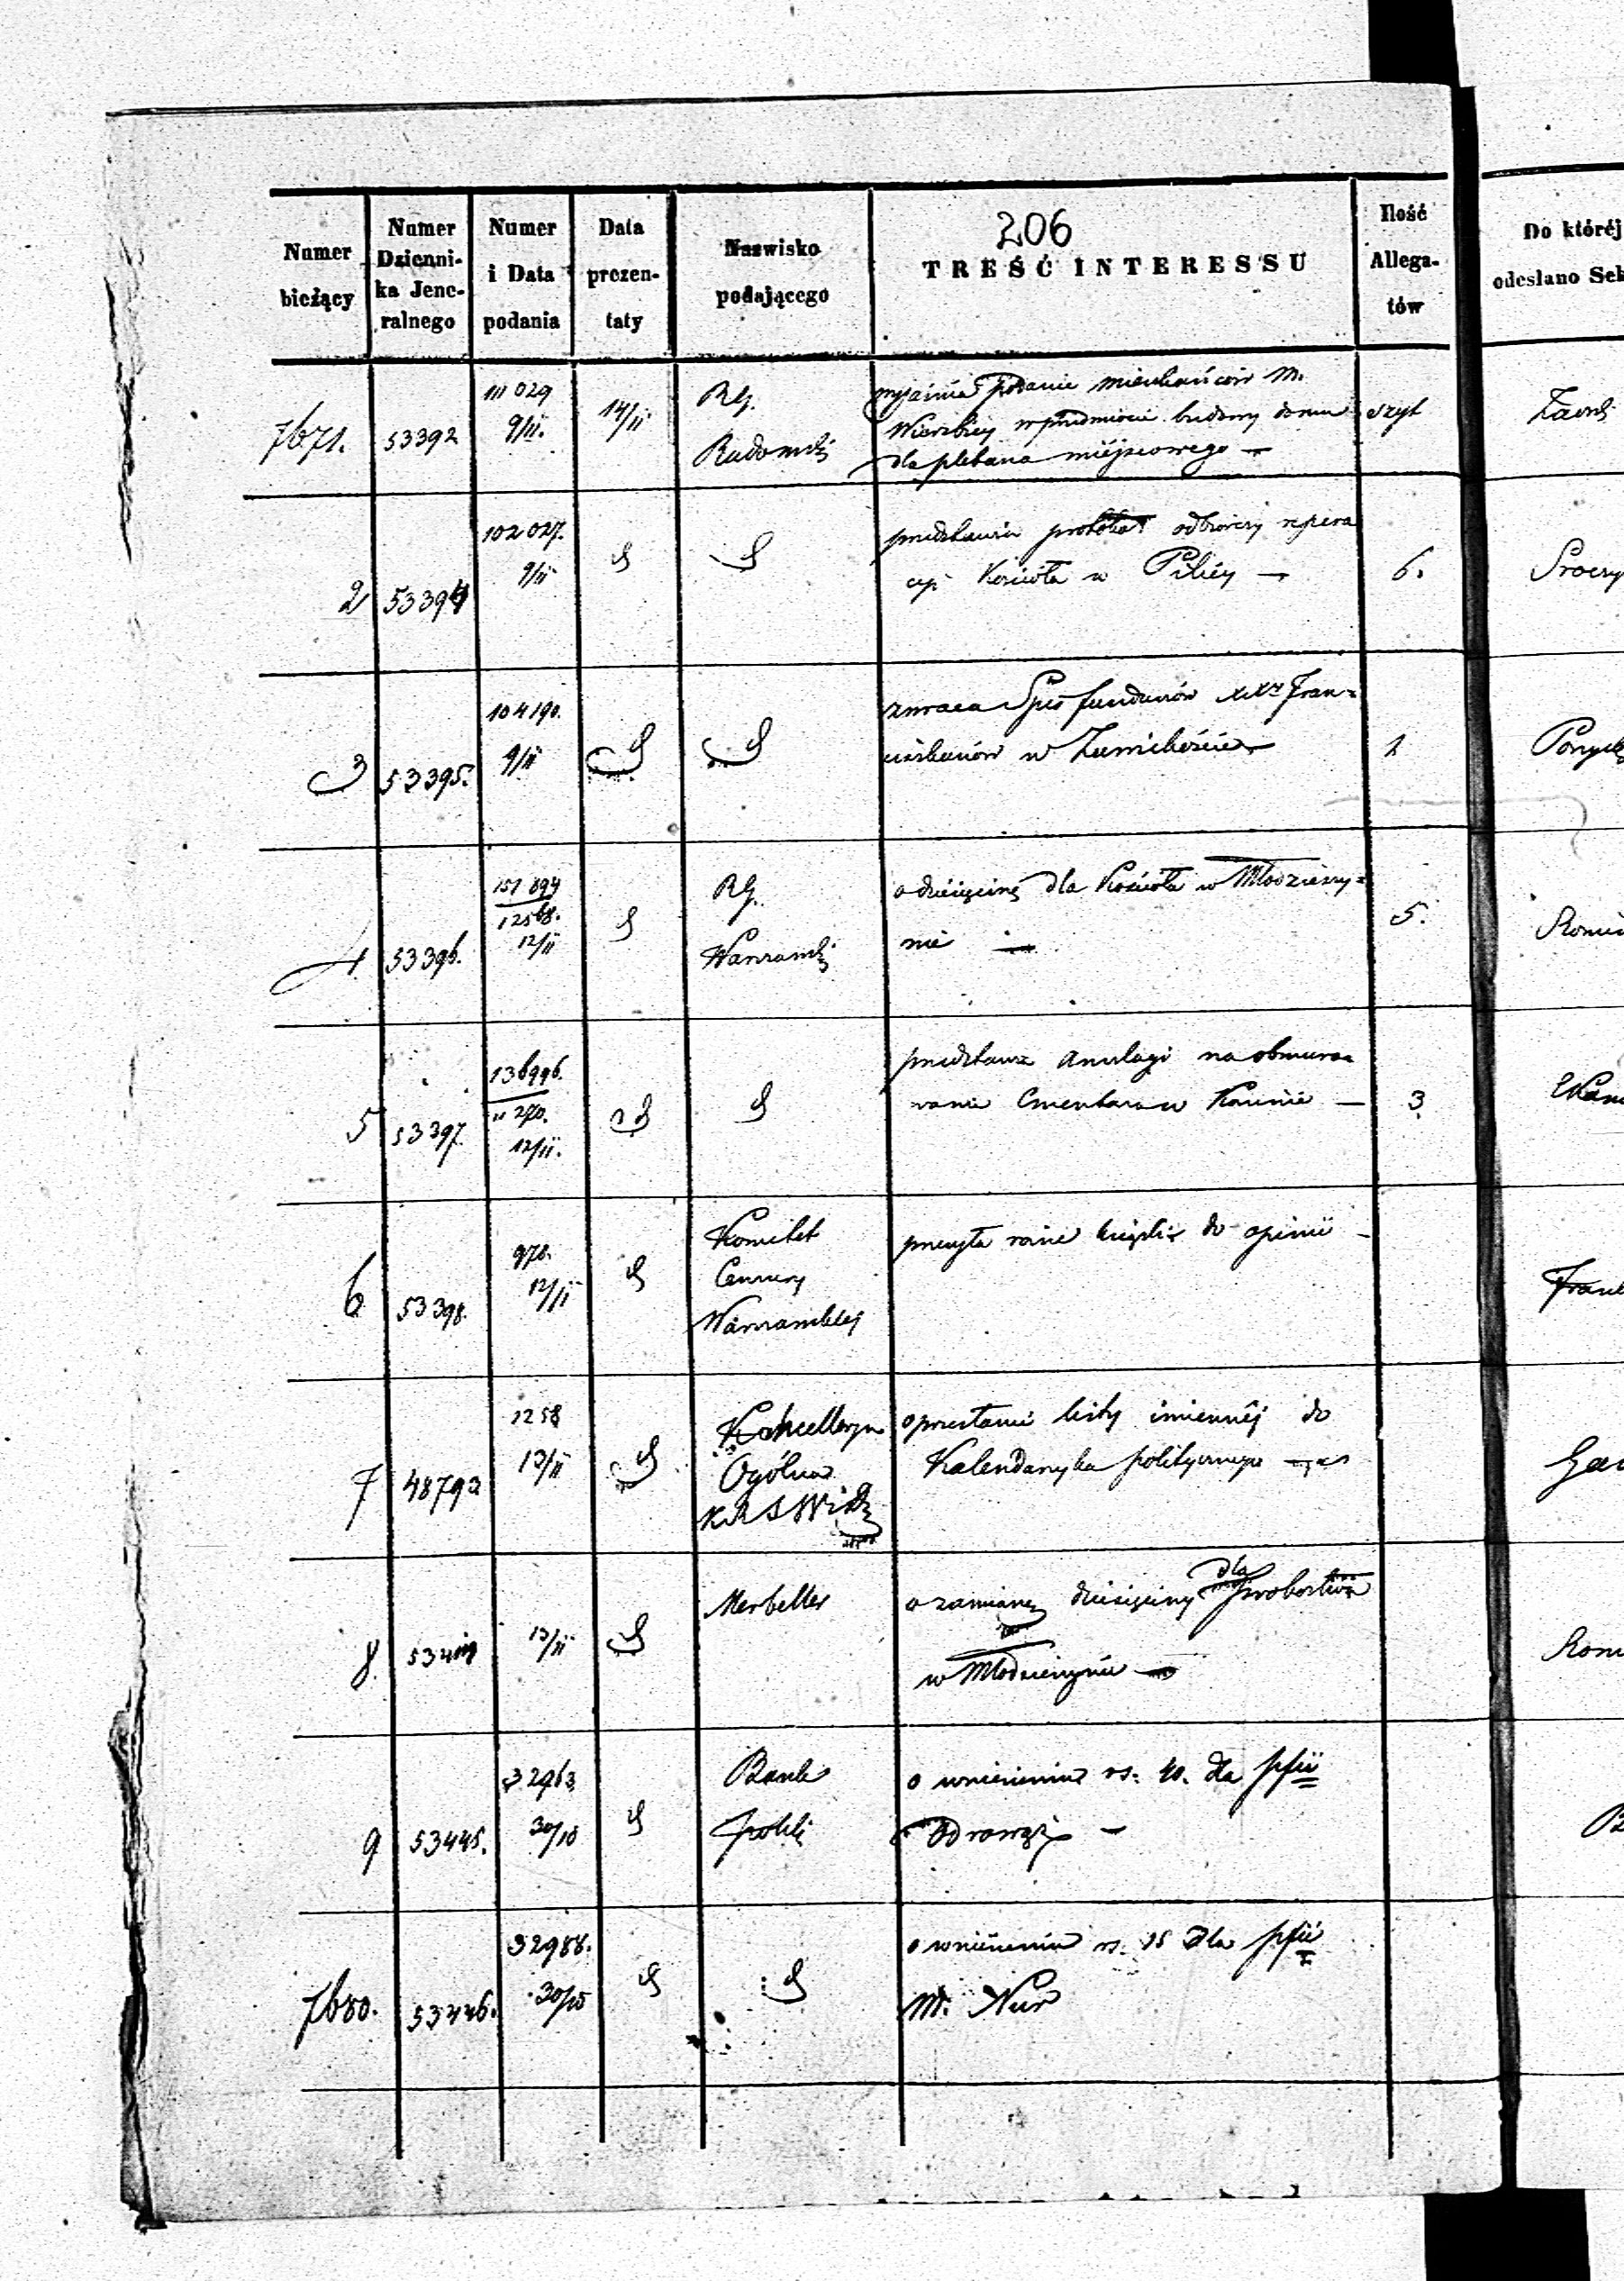 206
Numer bieżący
Numer Dziennika Jeneralnego
Numer i Data podania
Data prezentaty
Nazwisko podającego
TREŚĆ INTERESSU
Ilość Allegatów
Do któréj
odesłano Sek
7671. 53392 111029 9/II. 14/II RG. Radomski
wyjaśnia podanie mieszkańców M.
Wierzbicy w przedmiocie budowy domu
dla plebana miéjscowego —
szyt
2 53394 102027. 9/II
przedstawia protokół odbiorczy repera
cyi Kościoła w Pilicy —
6.
3 53395. 104190. 9/II
zwraca Spis funduszów XX Fran=
ciszkanów w Zawichoście
1
4 53396. 151894 12568. 12/II RG. Warszawski
o dziesięcinę dla Kościoła w Młodzieszy=
nie —
5.
5 53397. 136996. 11270. 12/II.
przedstawia anszlagi na obmuro=
wanie Cmentarza w Kominie —
3
6 53398. 970. 12/II Komitet Cenzury Warszawskiej
przesyła różne książki do opinii —
7 48792 1258 13/II Kancellarya Ogólna KRSW
o przesłanie listy imiennéj do
Kalendarzyka politycznego
8. 13/II Merbeller
o zamianę dziesięciny dla probostwa
w Młodzieszynie —
9 53445. 32963 30/10 Bank Polski
o wniesieniu rs. 40. dla pfii
Odrowąż —
7680. 53446. 32988. 30/10
o wniesieniu rs. 15 dla pfii
M. Nur